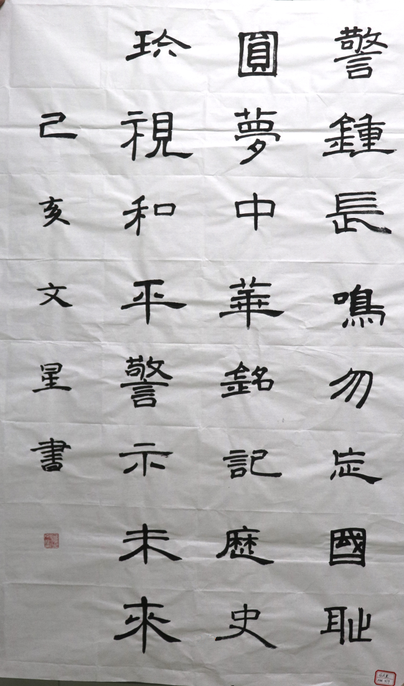 警鍾長鳴勿忘國耻
圓夢中華銘記歷史
珎視和平警示未來
己亥文星書